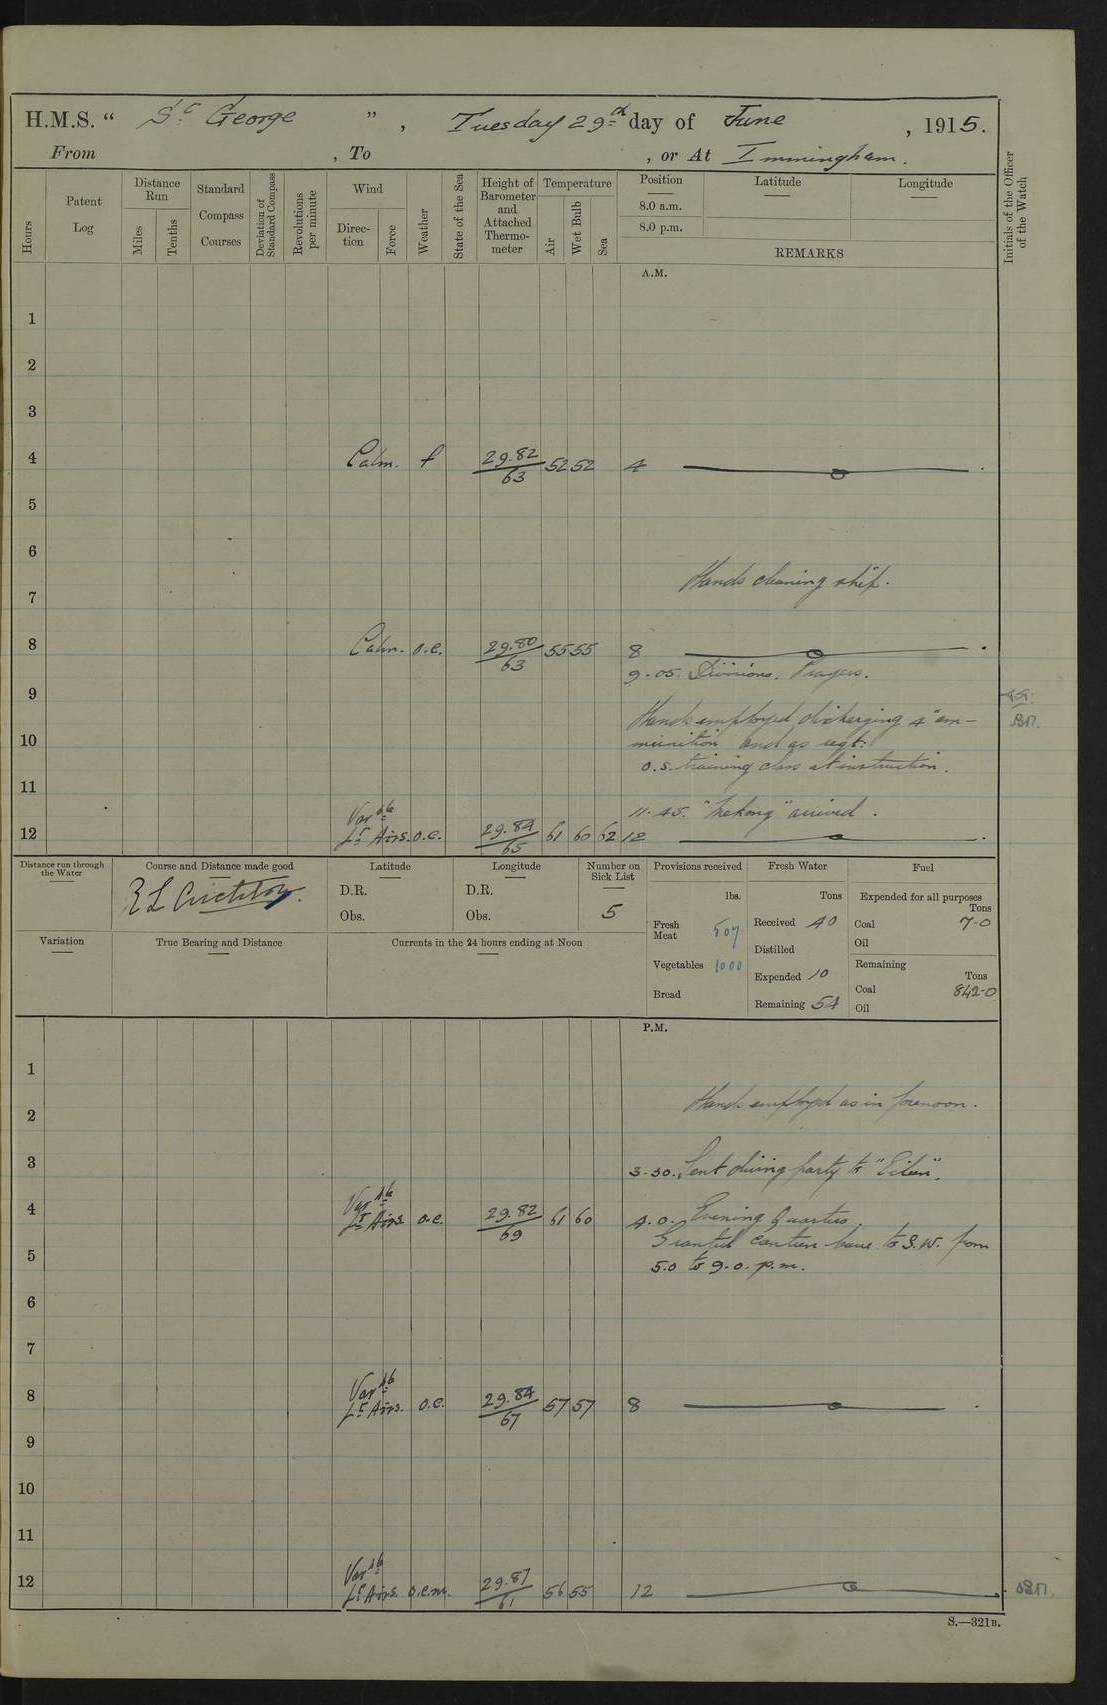 H.M.S. “ St George ” , Tuesday 29th day of June , 1915.
From , To , or At Immingham.
Hours
Patent Log
Distance Run
Miles
Tenths
Standard Compass Courses
Deviation of Standard Compass
Revolutions per minute
Wind
Direc-tion
Force
Weather
State of the Sea
Height of Barometer and Attached Thermo-meter
Temperature
Air
Wet Bulb
Sea
Position
8.0 a.m.
8.0 p.m.
Latitude
Longitude
REMARKS
Initials of the Officer of the Watch
A.M.
1
2
3
4 Calm. f 29.82/63 52 52 4
5
6
Hands cleaning ship.
7
8 Calm. o.c. 29.80/63 55 55 8
9.05. Divisions. Prayers.
9
Hands employed discharging 4" am-
10 munition and as reqt:
O.S. training class at instruction.
11
11.45. "Mekong" arrived.
12 Varble Lt Airs. o.c. 29.84/65 61 60 62 12
Distance run through the Water
Course and Distance made good
Latitude
D.R.
Obs.
Longitude
D.R.
Obs.
Number on Sick List
5
Provisions received
lbs.
Fresh Meat 507
Vegetables 1000
Bread
Fresh Water
Tons
Received 40
Distilled
Expended 10
Remaining 54
Fuel
Expended for all purposes
Tons
Coal 7-0
Oil
Remaining
Tons
Coal 842-0
Oil
Variation
True Bearing and Distance
Currents in the 24 hours ending at Noon
P.M.
1
2 Hands employed as in forenoon.
3 3-30. Sent diving party to "Eileen".
4 Varble Lt Airs o.c. 29.82/69 61 60 4.0. Evening Quarters.
Granted canteen leave to S.W. from
5 5.0 to 9.0. p.m.
6
7
8 Varble Lt Airs. o.c. 29.84/67 57 57 8
9
10
11
12 Varble Lt Airs. o.c.m. 29.87/61 56 55 12
S.—321B.